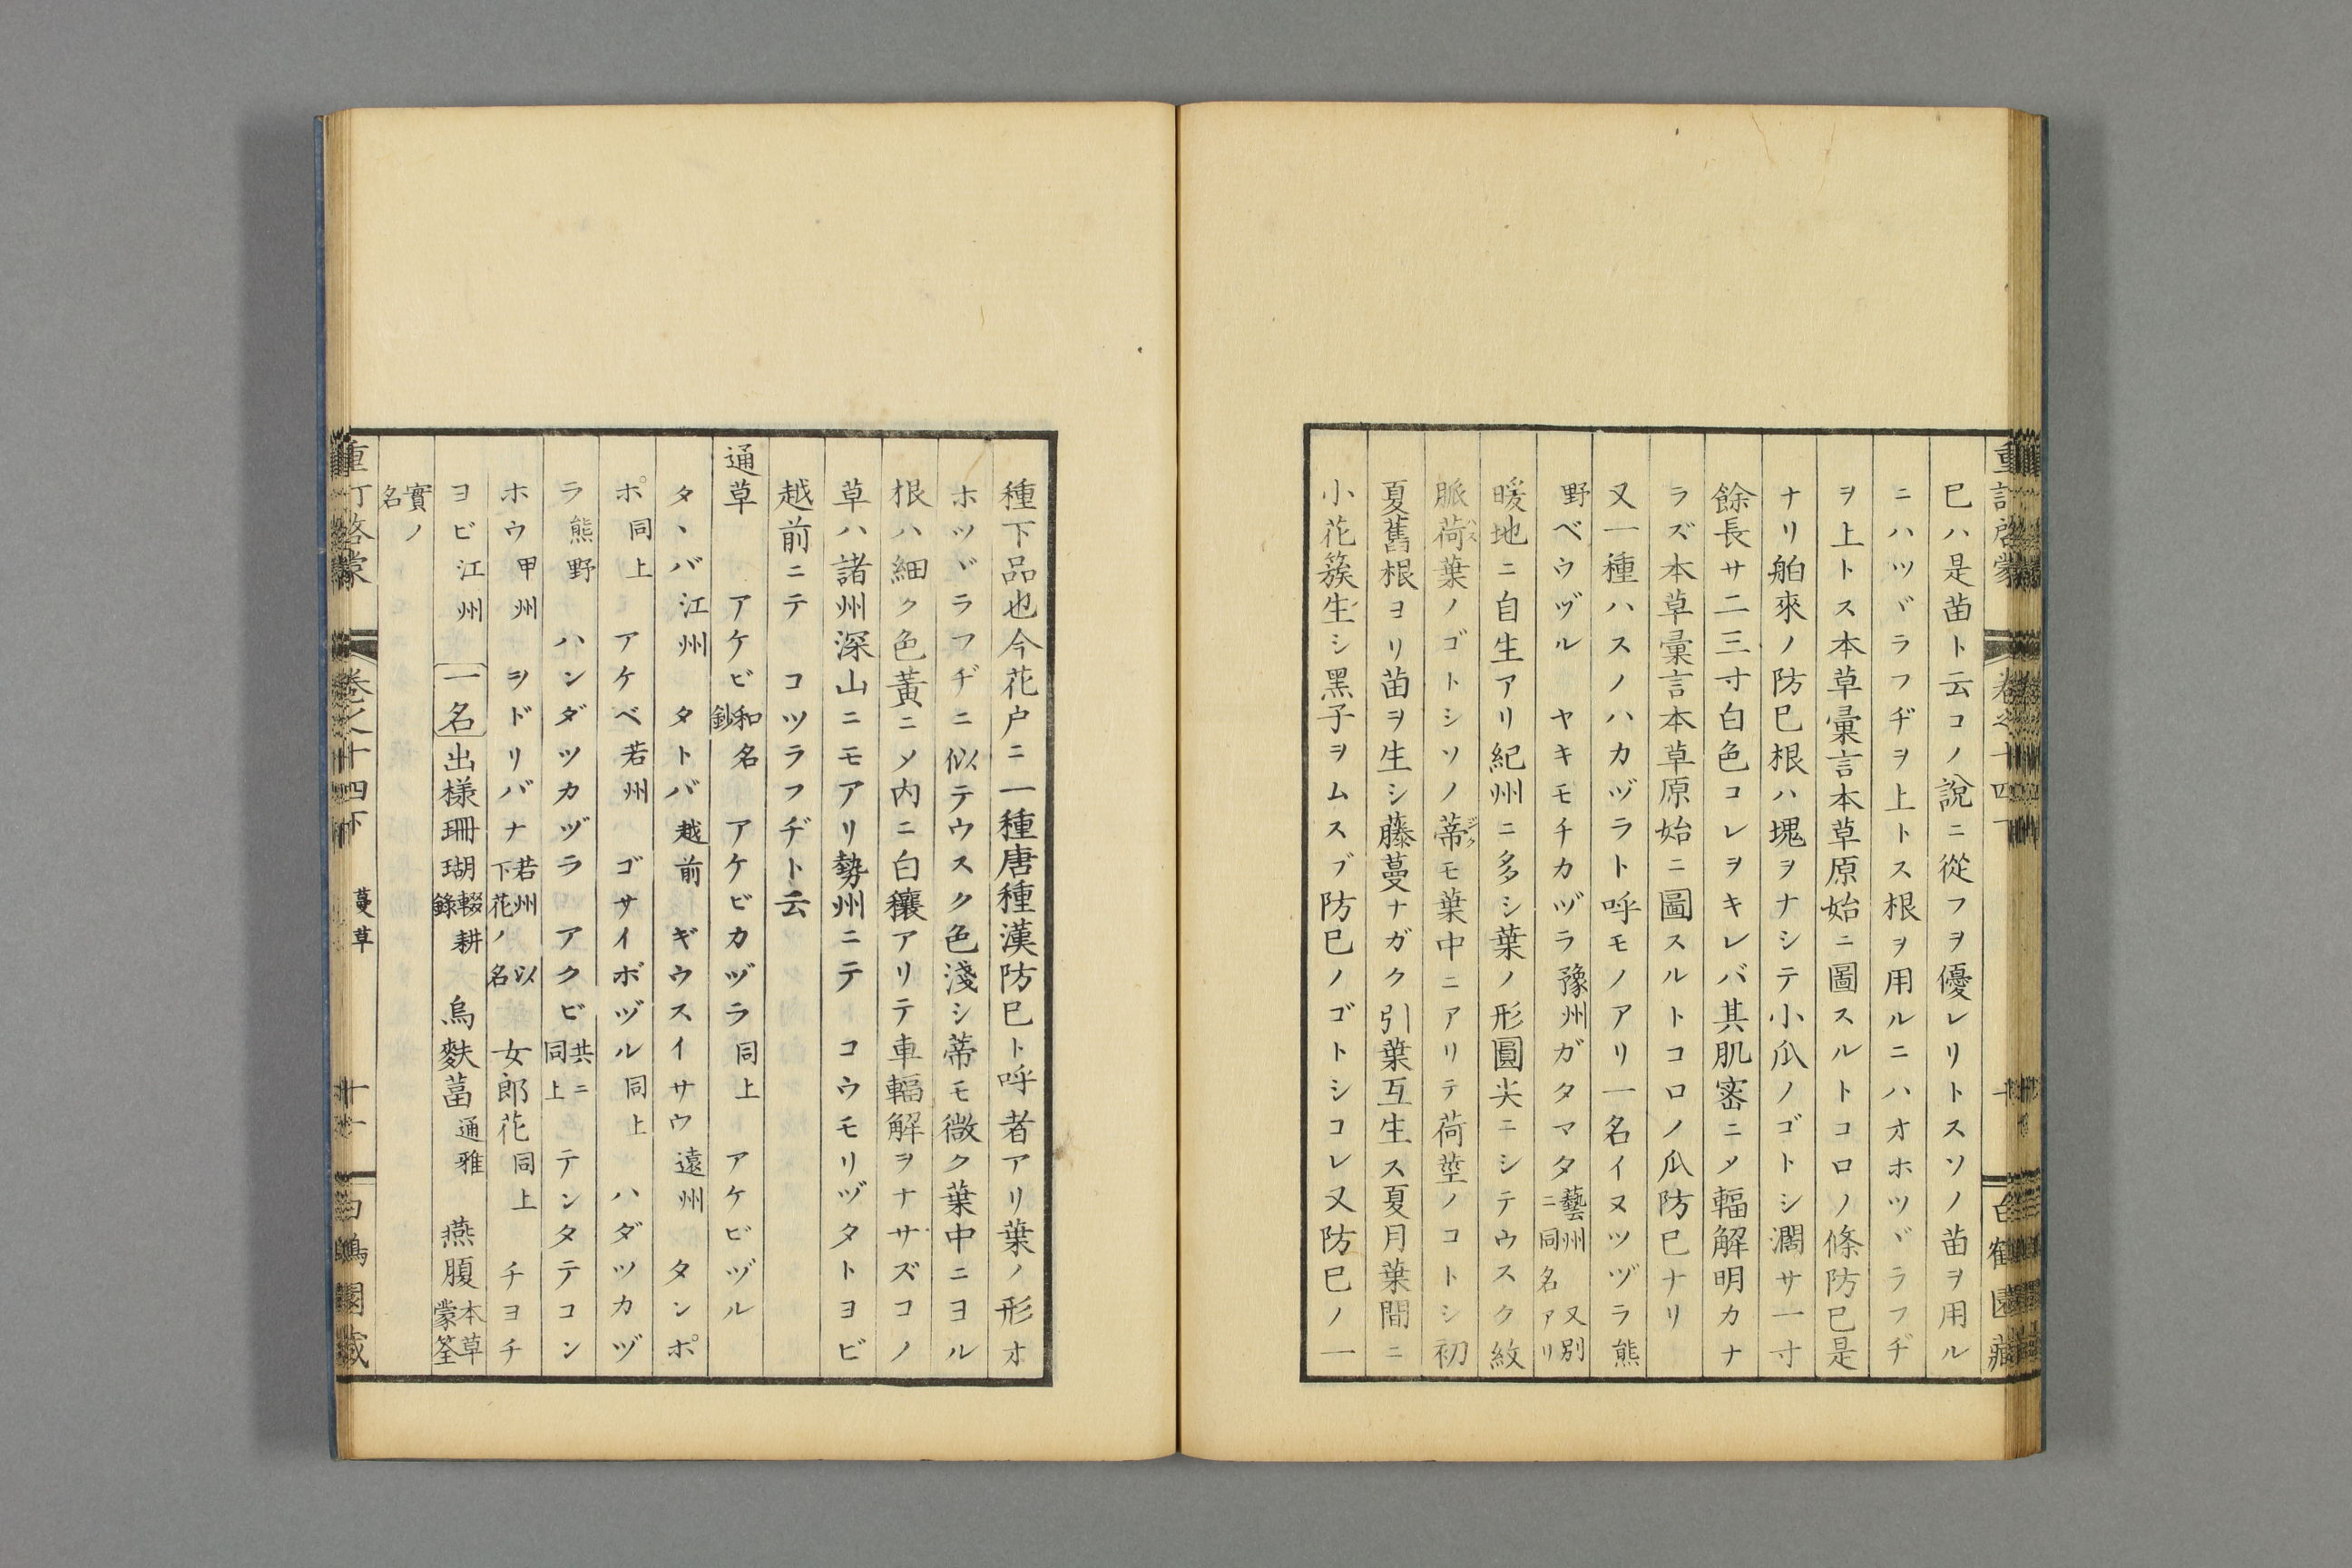 巳ハ是苗ト云コノ說ニ從フヲ優レリトスソノ苗ヲ用ル
ニハツヾラフヂヲ上トス根ヲ用ルニハオホツヾラフヂ
ヲ上トス本草彙言本草原始ニ圖スルトコロノ條防巳是
ナリ舶來ノ防巳根ハ塊ヲナシテ小瓜ノゴトシ濶サ一寸
餘長サ二三寸白色コレヲキレバ其肌密ニメ輻解明カナ
ラズ本草彙言本草原始ニ圖スルトコロノ瓜防巳ナリ
又一種ハスノハカヅラト呼モノアリ一名イヌツヅラ熊
野ベウヅル ヤキモチカヅラ豫州ガタマタ藝州又別ニ同名アリ
暖地ニ自生アリ紀州ニ多シ葉ノ形圓尖ニシテウスク紋
脈荷葉ノゴトシソノ蒂モ葉中ニアリテ荷莖ノコトシ初
夏舊根ヨリ苗ヲ生シ藤蔓ナガク引葉互生ス夏月葉間ニ
小花簇生シ黑子ヲムスブ防巳ノゴトシコレ又防巳ノ一
種下品也今花户ニ一種唐種漢防巳ト呼者アリ葉ノ形オ
ホツヾラフヂニ似テウスク色淺シ蒂モ微ク葉中ニヨル
根ハ細ク色黃ニメ内ニ白穰アリテ車輻解ヲナサズコノ
草ハ諸州深山ニモアリ勢州ニテ コウモリヅタトヨビ
越前ニテ コツラフヂト云
通草 アケビ和名鈔 アケビカヅラ同上 アケビヅル
タヽバ江州 タトバ越前 ギウスイサウ遠州 タンポ
ポ同上 アケベ若州 ゴサイボヅル同上 ハダツカヅ
ラ熊野 ハンダツカヅラ アクビ共ニ同上 テンタテコン
ホウ甲州 ヲドリバナ若州以下花ノ名 女郎花同上 チヨチ
ヨビ江州 一名出樣珊瑚輟耕錄 烏麩葍通雅 燕腹本草蒙筌
實ノ名
蔓草